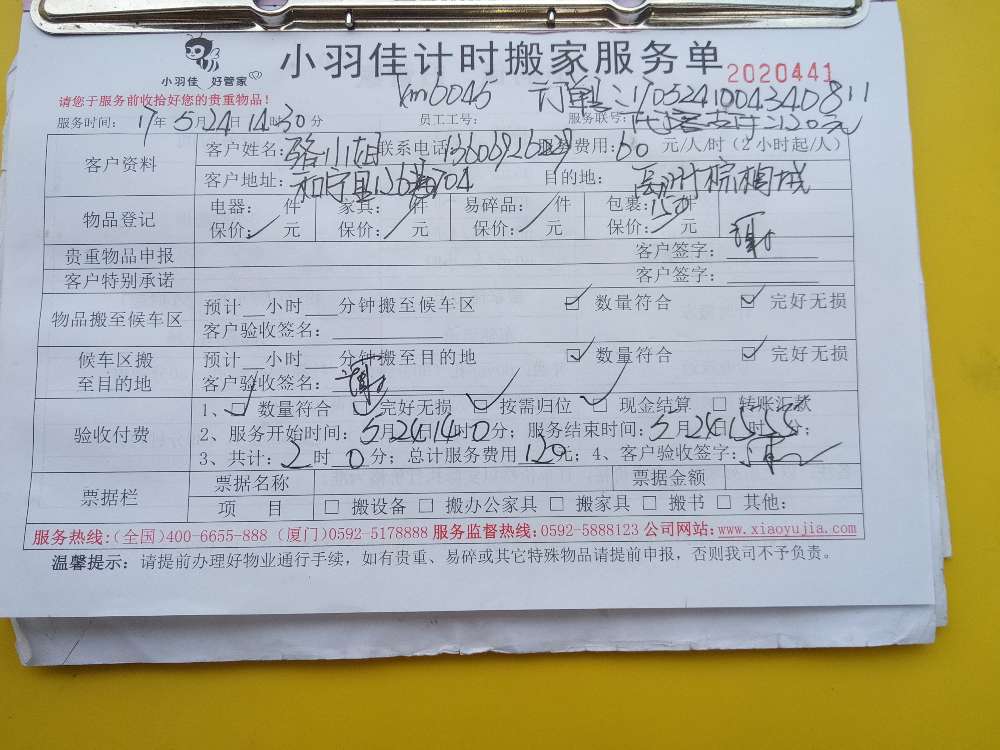 小羽佳 好管家
小羽佳计时搬家服务单
2020441
请您于服务前收拾好您的贵重物品！
km6045 订单:1705241004340811
服务时间: 17年5月24日14时30分 员工工号: 服务联号: 代客支付:120元
客户资料
客户姓名: 骆小姐 联系电话: 费用: 60 元/人/时（2小时起/人）
客户地址: 和宁里 704 目的地: 棕榈城
物品登记
电器: 件 家具: 件 易碎品: 件 包裹: 件
保价: 元 保价: 元 保价: 元 保价: 元
贵重物品申报 客户签字:
客户特别承诺 客户签字:
物品搬至候车区
预计 小时 分钟搬至候车区 ☑ 数量符合 ☑ 完好无损
客户验收签名:
候车区搬至目的地
预计 小时 分钟搬至目的地 ☑ 数量符合 ☑ 完好无损
客户验收签名:
验收付费
1、☑ 数量符合 ☑ 完好无损 ☑ 按需归位 ☑ 现金结算 □ 转账汇款
2、服务开始时间: 5月24日14时0分; 服务结束时间: 5月24日 时 分;
3、共计: 2时0分; 总计服务费用 120元; 4、客户验收签字:
票据栏
票据名称 票据金额
项 目 □ 搬设备 □ 搬办公家具 □ 搬家具 □ 搬书 □ 其他:
服务热线:(全国)400-6655-888 (厦门)0592-5178888 服务监督热线:0592-5888123 公司网站:www.xiaoyujia.com
温馨提示: 请提前办理好物业通行手续，如有贵重、易碎或其它特殊物品请提前申报，否则我司不予负责。